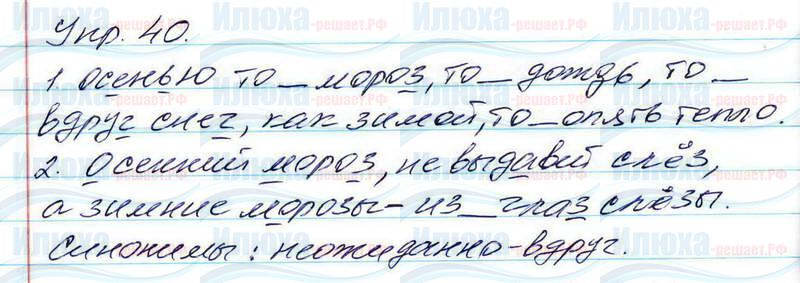 Упр. 40.
1. Осенью то_мороз, то_дождь, то_
вдруг снег, как зимой, то_опять тепло.
2. Осенний мороз, не выдавит слёз,
а зимние морозы – из_глаз слёзы.
Синонимы: неожиданно – вдруг.